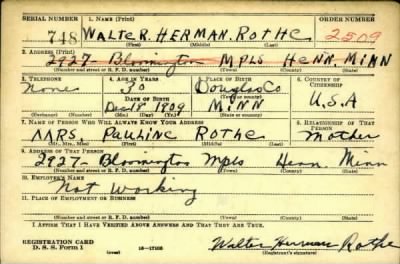 SERIAL NUMBER 1. NAME (Print) ORDER NUMBER
748 WALTER. HERMAN. ROTHE 2509
(First) (Middle) (Last)
2. ADDRESS (Print)
2927- Bloomington MPLS HENN. MINN
(Number and street or R. F. D. number) (Town) (County) (State)
3. TELEPHONE 4. AGE IN YEARS 5. PLACE OF BIRTH 6. COUNTRY OF CITIZENSHIP
None 30 Douglas Co
DATE OF BIRTH MINN U.S.A
Dec 1909
(Exchange) (Number) (Mo.) (Day) (Yr.) (State or country)
7. NAME OF PERSON WHO WILL ALWAYS KNOW YOUR ADDRESS 8. RELATIONSHIP OF THAT PERSON
MRS. Pauline Rothe Mother
(Mr., Mrs., Miss) (First) (Middle) (Last)
9. ADDRESS OF THAT PERSON
2927- Bloomington Mpls Henn. Minn
(Number and street or R. F. D. number) (Town) (County) (State)
10. EMPLOYER'S NAME
Not Working
11. PLACE OF EMPLOYMENT OR BUSINESS
(Number and street or R. F. D. number) (Town) (County) (State)
I AFFIRM THAT I HAVE VERIFIED ABOVE ANSWERS AND THAT THEY ARE TRUE.
REGISTRATION CARD
D. S. S. Form 1 (over) Walter Herman Rothe
(Registrant's signature)